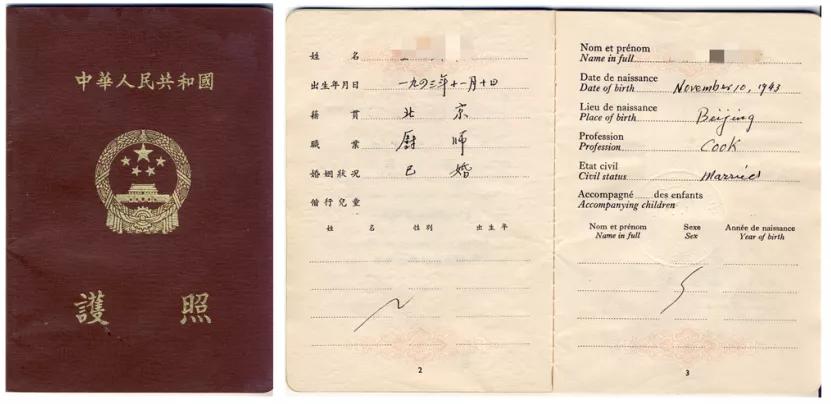 中華人民共和國
護照
姓名
出生年月日 一九四三年十一月十日
籍貫 北京
職業 廚师
婚姻狀况 已婚
偕行兒童
姓名 性別 出生年
2
Nom et prénom
Name in full
Date de naissance
Date of birth November 10, 1943
Lieu de naissance
Place of birth Beijing
Profession
Profession Cook
Etat civil
Civil status Married
Accompagné des enfants
Accompanying children
Nom et prénom Sexe Année de naissance
Name in full Sex Year of birth
3